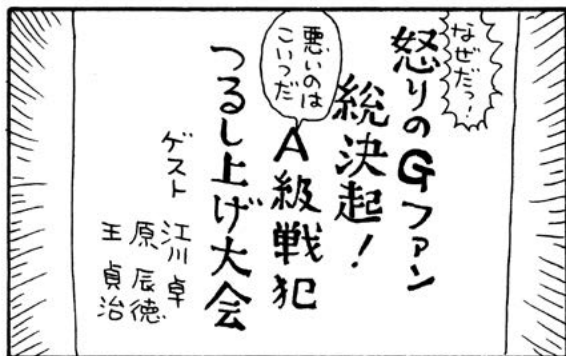 なぜだっ!
怒りのGファン
総決起!
悪いのは
こいつだ
A級戦犯
つるし上げ大会
ゲスト
江川卓
原辰徳
王貞治